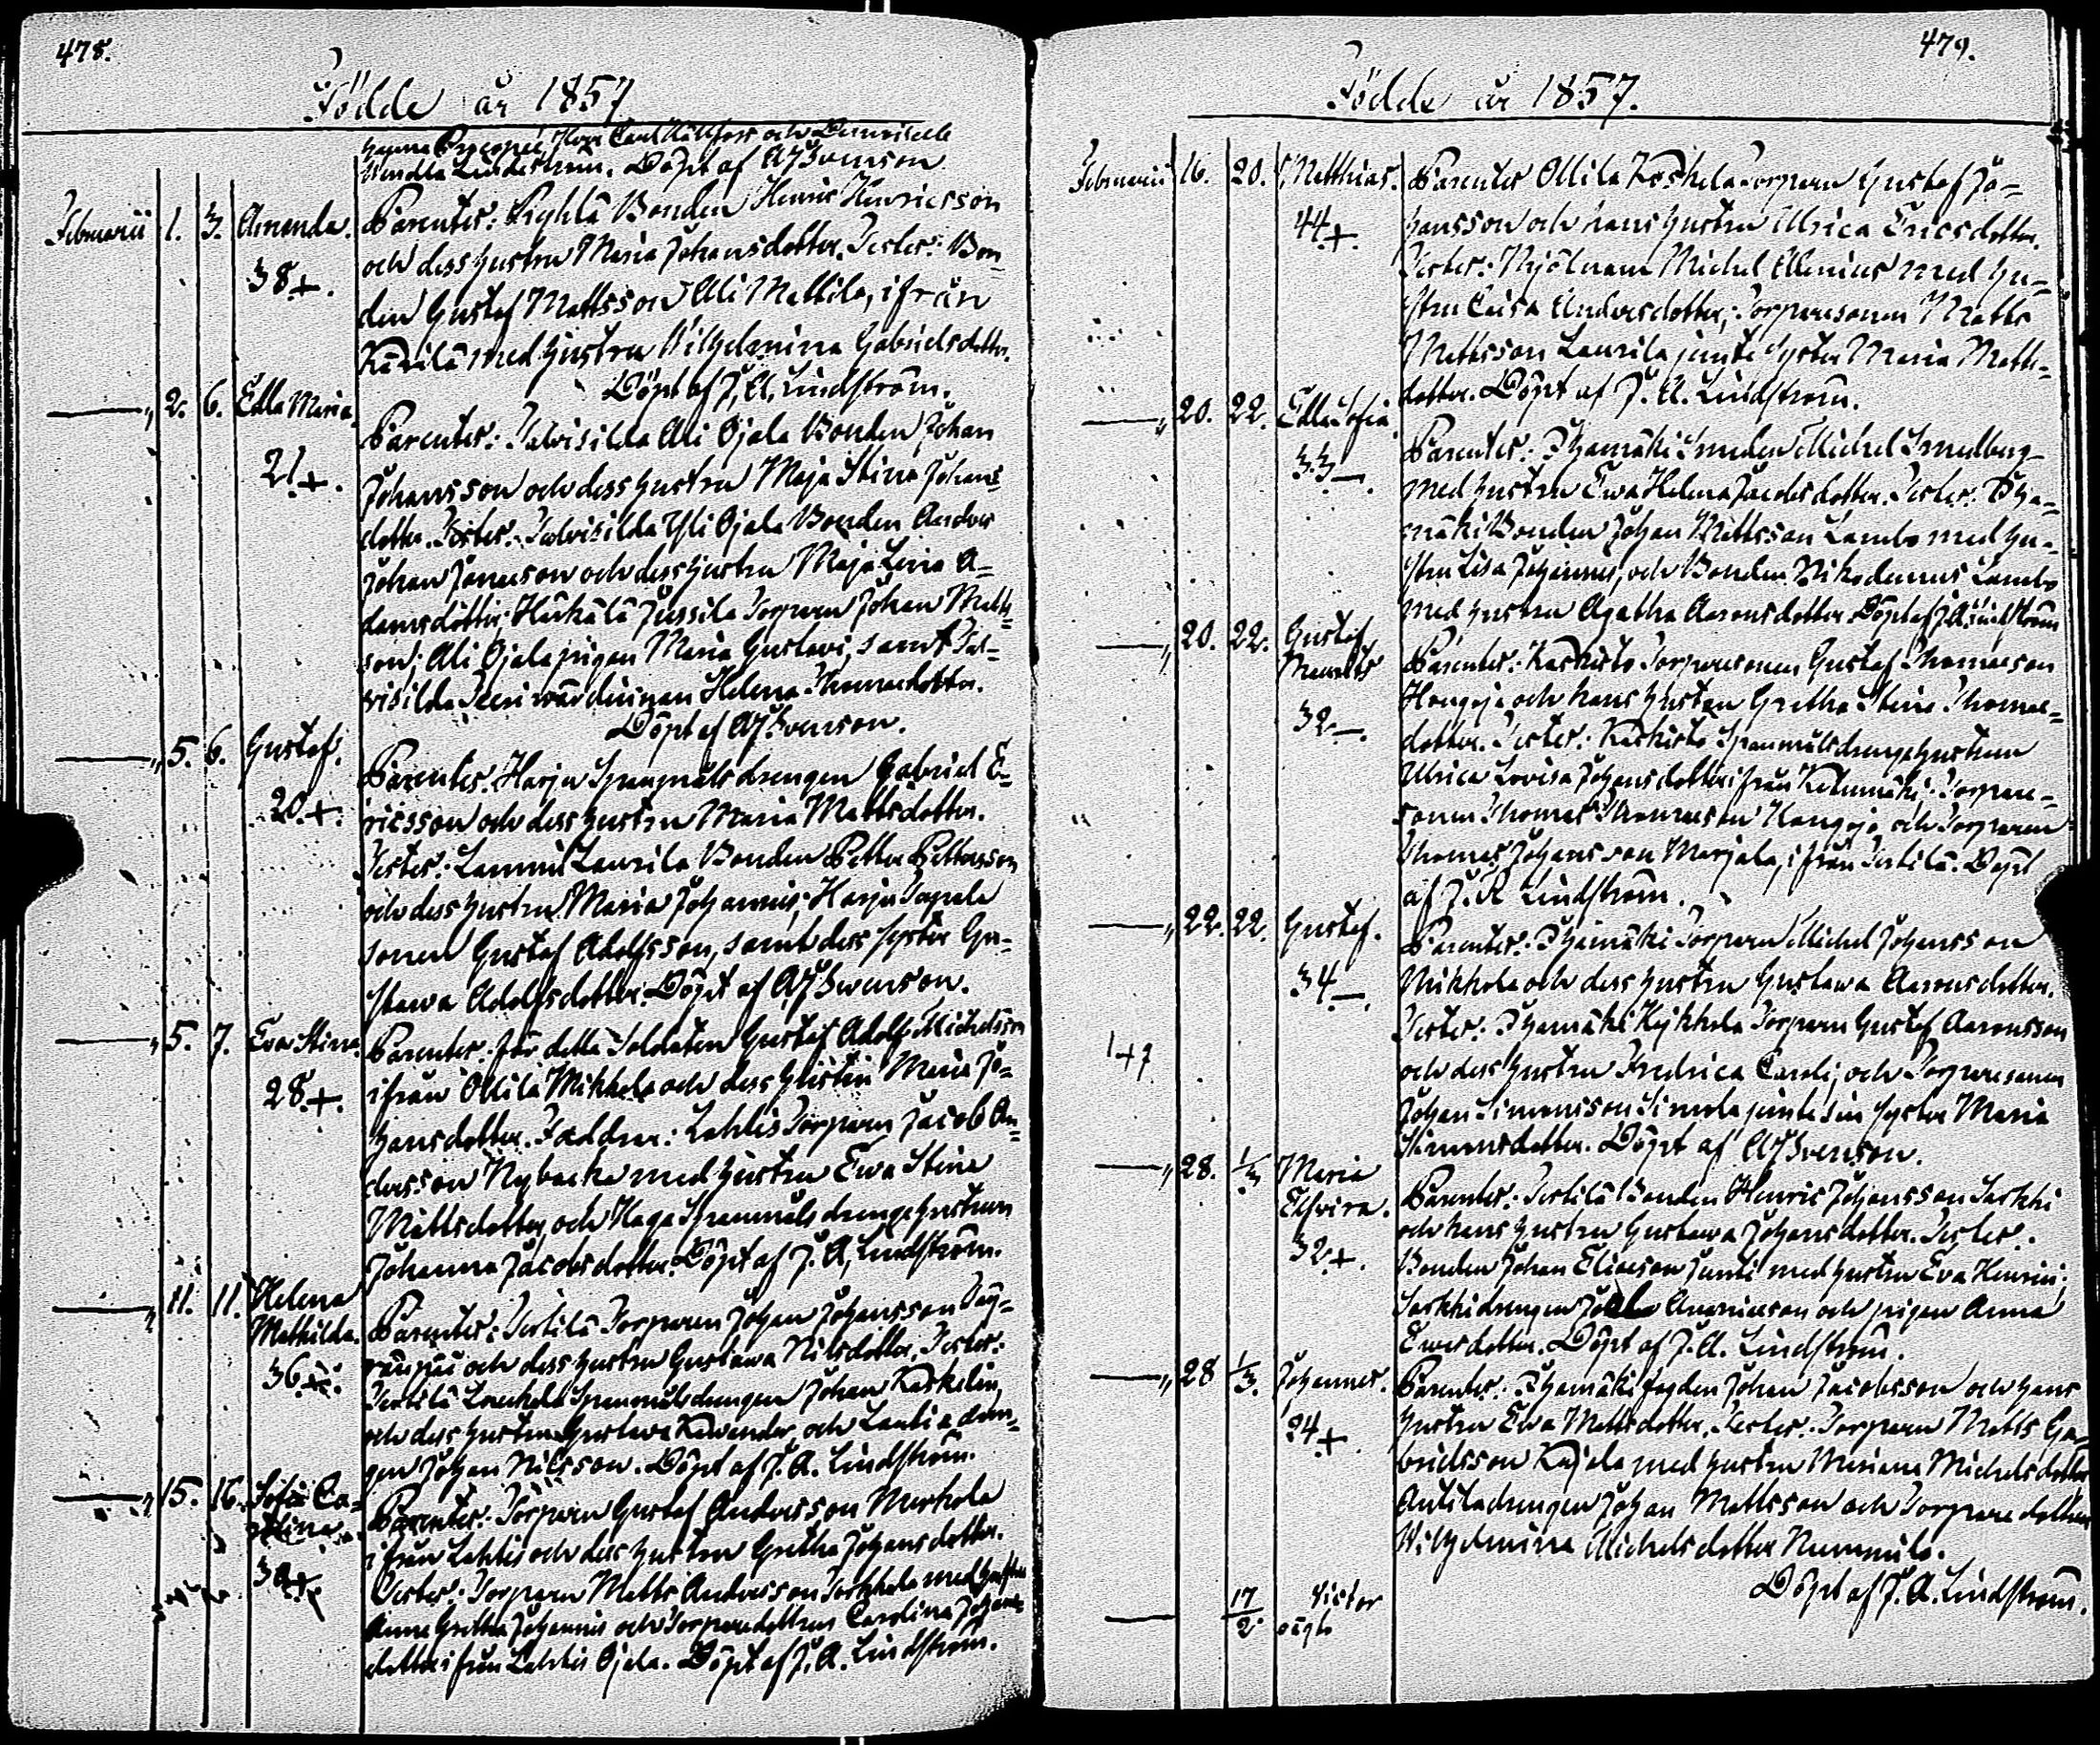 478.
Födde år 1857
Hanna Procopeé, Herr Carl Källfors och Demoiselle
Vendla Lindeström. Döpt af AJSvenson
Februarii 1. 3. Amanda. Parentes: Pyhlä Bonden Henric Henricsson
och dess hustru Maria Johansdotter. Testes: Bon-
38+. den Gustaf Mattsson Ali Mattila, ifrån
Kärilä med hustru Wilhelmina Gabrielsdotter.
Döpt af J. A. Lindström.
—„ 2. 6. Edla Maria. Parentes: Talvisilda Ali Ojala Bonden Johan
21+. Johansson och dess hustru Maja Stina Johans-
dotter. Testes: Talvisilda Yli Ojala Bonden Anders
Johan Jonasson och dess hustru Maja Lena A-
damsdotter; Härkälä Jussila Torparen Johan Matts-
son; Ali Ojala pigan Maria Gustavi, samt Tal-
visilda Helena Thomasdotter.
Döpt af AJSvenson.
—„ 5. 6. Gustaf. Parentes: Harju Spanmåls drengen Gabriel E-
20.+. ricsson och dess hustru Maria Mattsdotter.
Testes: Lammi Laurila Bonden Petter Pettersson
och dess hustru Maria Johannis; Harju Papula
sonen Gustaf Adolfsson, samt dess syster Gu-
stava Adolfsdotter. Döpt af AJSvenson.
—„ 5. 7. Eva Stina. Parentes: för detta Soldaten Gustaf Adolf Michelsson
28.+. ifrån Ollila Mikkola och dess hustru Maria Jo-
hansdotter. Faddrar: Lahtis Torparen Jacob An-
dersson Nybacka med hustru Ewa Stina
Mattsdotter, och Haga Spanmåls drengehustrun
Johanna Jacobsdotter. Döpt af J. A. Lindström.
—„ 11. 11. Helena
Mathilda. Parentes: Terttilä Torparen Johan Johansson
36 och dess hustru Gustawa Nilsdotter. Testes:
Terttilä Spanmålsdrengen Johan
och dess hustru Gustava och dren-
gen Johan Nilsson. Döpt af J. A. Lindström.
—„ 15. 16. Sofia Ca-
Stina. Parentes: Torparen Gustaf Andersson
ifrån Lahtis och dess hustru Gretha Johansdotter.
Testes: Torparen Matts Andersson med hustru
Anna Gretha Johannis och Torparedottren Carolina Johans-
dotter ifrån Lahtis Ojala. Döpt af J. A. Lindström.
479.
Födde år 1857.
Februarii 16. 20. Matthias. Parentes Ollila Koskela Torparen Gustaf Jo-
44+. hansson och hans hustru Ulrica Ericsdotter.
Testes: Mjölnaren Michel Allenius med hu-
stru Caisa Andersdotter; Torparesonen Matts
Mattsson Laurila jemte syster Maria Matts-
dotter. Döpt af J. A. Lindström.
—„ 20. 22. Edla Sofia. Parentes: Ihamäki Smeden Michel Smedberg
33—. med hustru Ewa Helena Jacobsdotter. Testes: Iha-
mäki Bonden Johan Mattsson Lambo med hu-
stru Lisa Johannis, och Bonden Nikodemus Lambo
med hustru Agatha Aaronsdotter. Döpt af J. A. Lindström
—„ 20. 22. Gustaf
Maurits Parentes: Kaskisto Torparesonen Gustaf Thomasson
32—. Hongoja och hans hustru Gretha Stina Thomas-
dotter. Testes: Kaskisto Spanmålsdrengehustrun
Ulrica Lovisa Johansdotter ifrån; Torpare-
sonen Thomas Thomasson Hongoja, och Torparen
Thomas Johansson Marjala, ifrån Terttilä. Döpt
af J. A Lindström.
—„ 22. 22. Gustaf. Parentes: Ihamäki Torparen Michel Johansson
34—. Mikkola och dess hustru Gustawa Aaronsdotter.
147 Testes: Ihamäki Hykkölä Torparen Gustaf Aaronsson
och dess hustru Fredrica Caroli, och Torparesonen
Johan Simonsson Simola jemte sin syster Maria
Simonsdotter. Döpt af AJSvenson.
—„ 28. 1/3 Maria
Elvira. Parentes: Terttilä Bonden Henric Johansson Sarkki
och hans hustru Gustawa Johansdotter. Testes:
32.+. Bonden Johan Eliasson Junti med hustru Eva Henrici;
Sarkki drengen och pigan Anna
Ewersdotter. Döpt af J. A. Lindström.
—„ 28 1/3. Johannes. Parentes: Ihamäki fogden Johan Jacobsson och hans
24+. hustru Ewa Mattsdotter. Testes: Torparen Matts Ga-
brielsson Kujala med hustru Mariana Michelsdotter
Anttila drengen Johan Mattsson och Torparedottren
Wilhelmina Michelsdotter Nummila.
Döpt af J. A. Lindström.
— 17/2 Victor
oägta